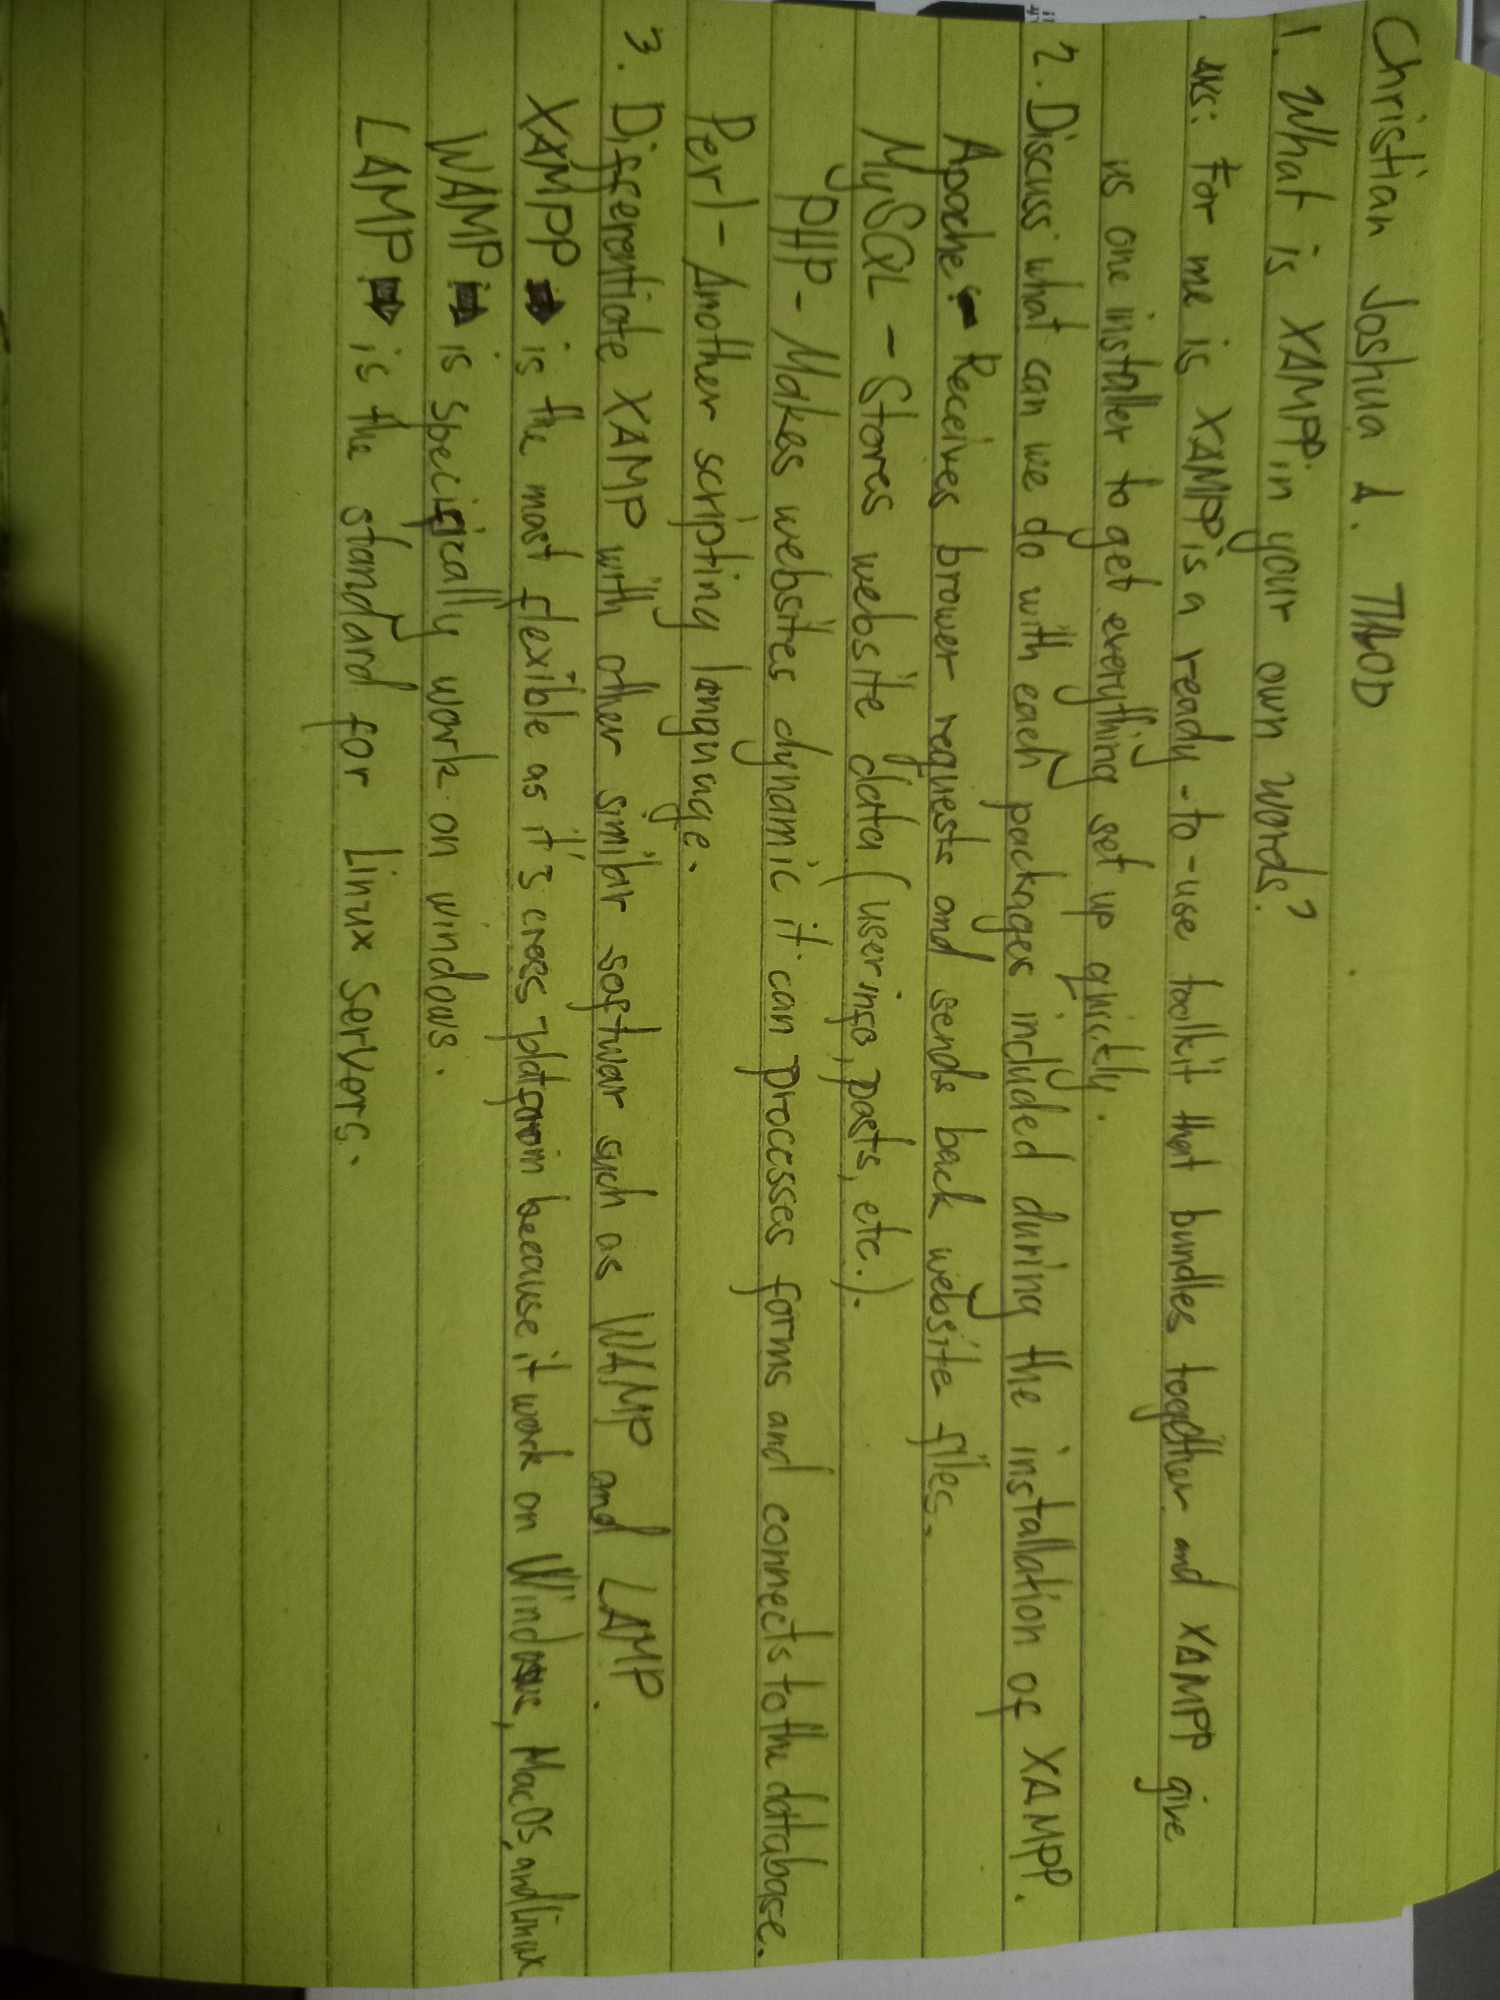 Christian Joshua A.
1. What is XAMPP in your own words?
ANS: For me is XAMPP is a ready-to-use toolkit that bundles together and XAMPP give
us one installer to get everything set up quickly.
2. Discuss what can we do with each packages included during the installation of XAMPP.
Apache - Receives brower requests and sends back website files.
MySQL - Stores website data (user info, posts, etc.).
PHP - Makes websites dynamic it can processes forms and connects to the database.
Perl - Another scripting language.
3. Differentiate XAMP with other similar softwar such as WAMP and LAMP.
XAMPP → is the most flexible as it's cross-platform because it work on Windows, MacOS, and Linux
WAMP → is specifically work on windows.
LAMP → is the standard for Linux servers.